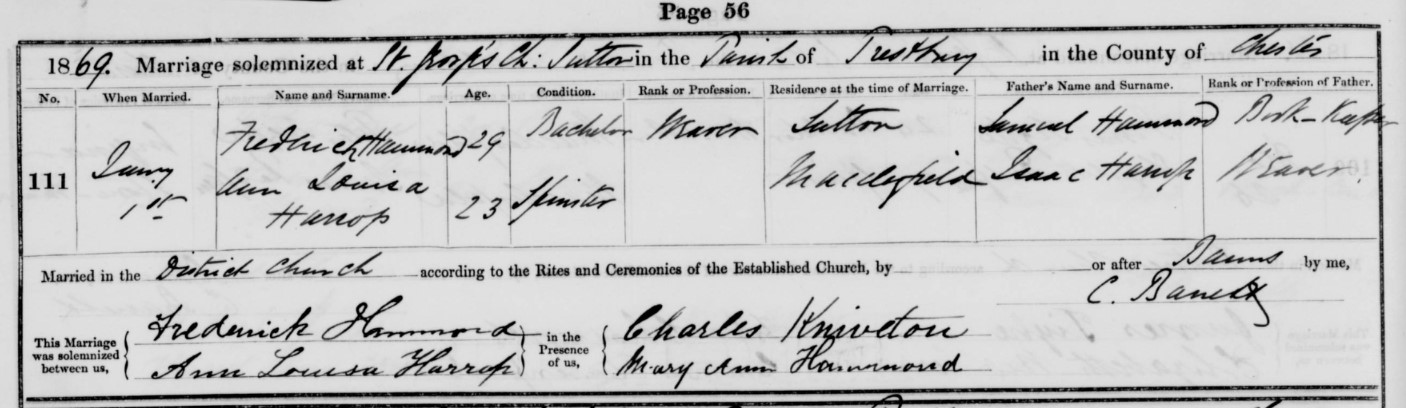 Page 56
1869. Marriage solemnized at St. George's Ch: Sutton in the Parish of Prestbury in the County of Chester
No. When Married. Name and Surname. Age. Condition. Rank or Profession. Residence at the time of Marriage. Father's Name and Surname. Rank or Profession of Father.
111 Jany 1st Fredrick Hammond 29 Bachelor Weaver Sutton Samuel Hammond Book-Keeper
Ann Louisa Harrop 23 Spinster Macclesfield Isaac Harrop Weaver.
Married in the District Church according to the Rites and Ceremonies of the Established Church, by or after Banns by me,
C.
This Marriage was solemnized between us, Frederick Hammond in the Presence of us, Charles Kniveton
Ann Louisa Harrop Mary Ann Hammond